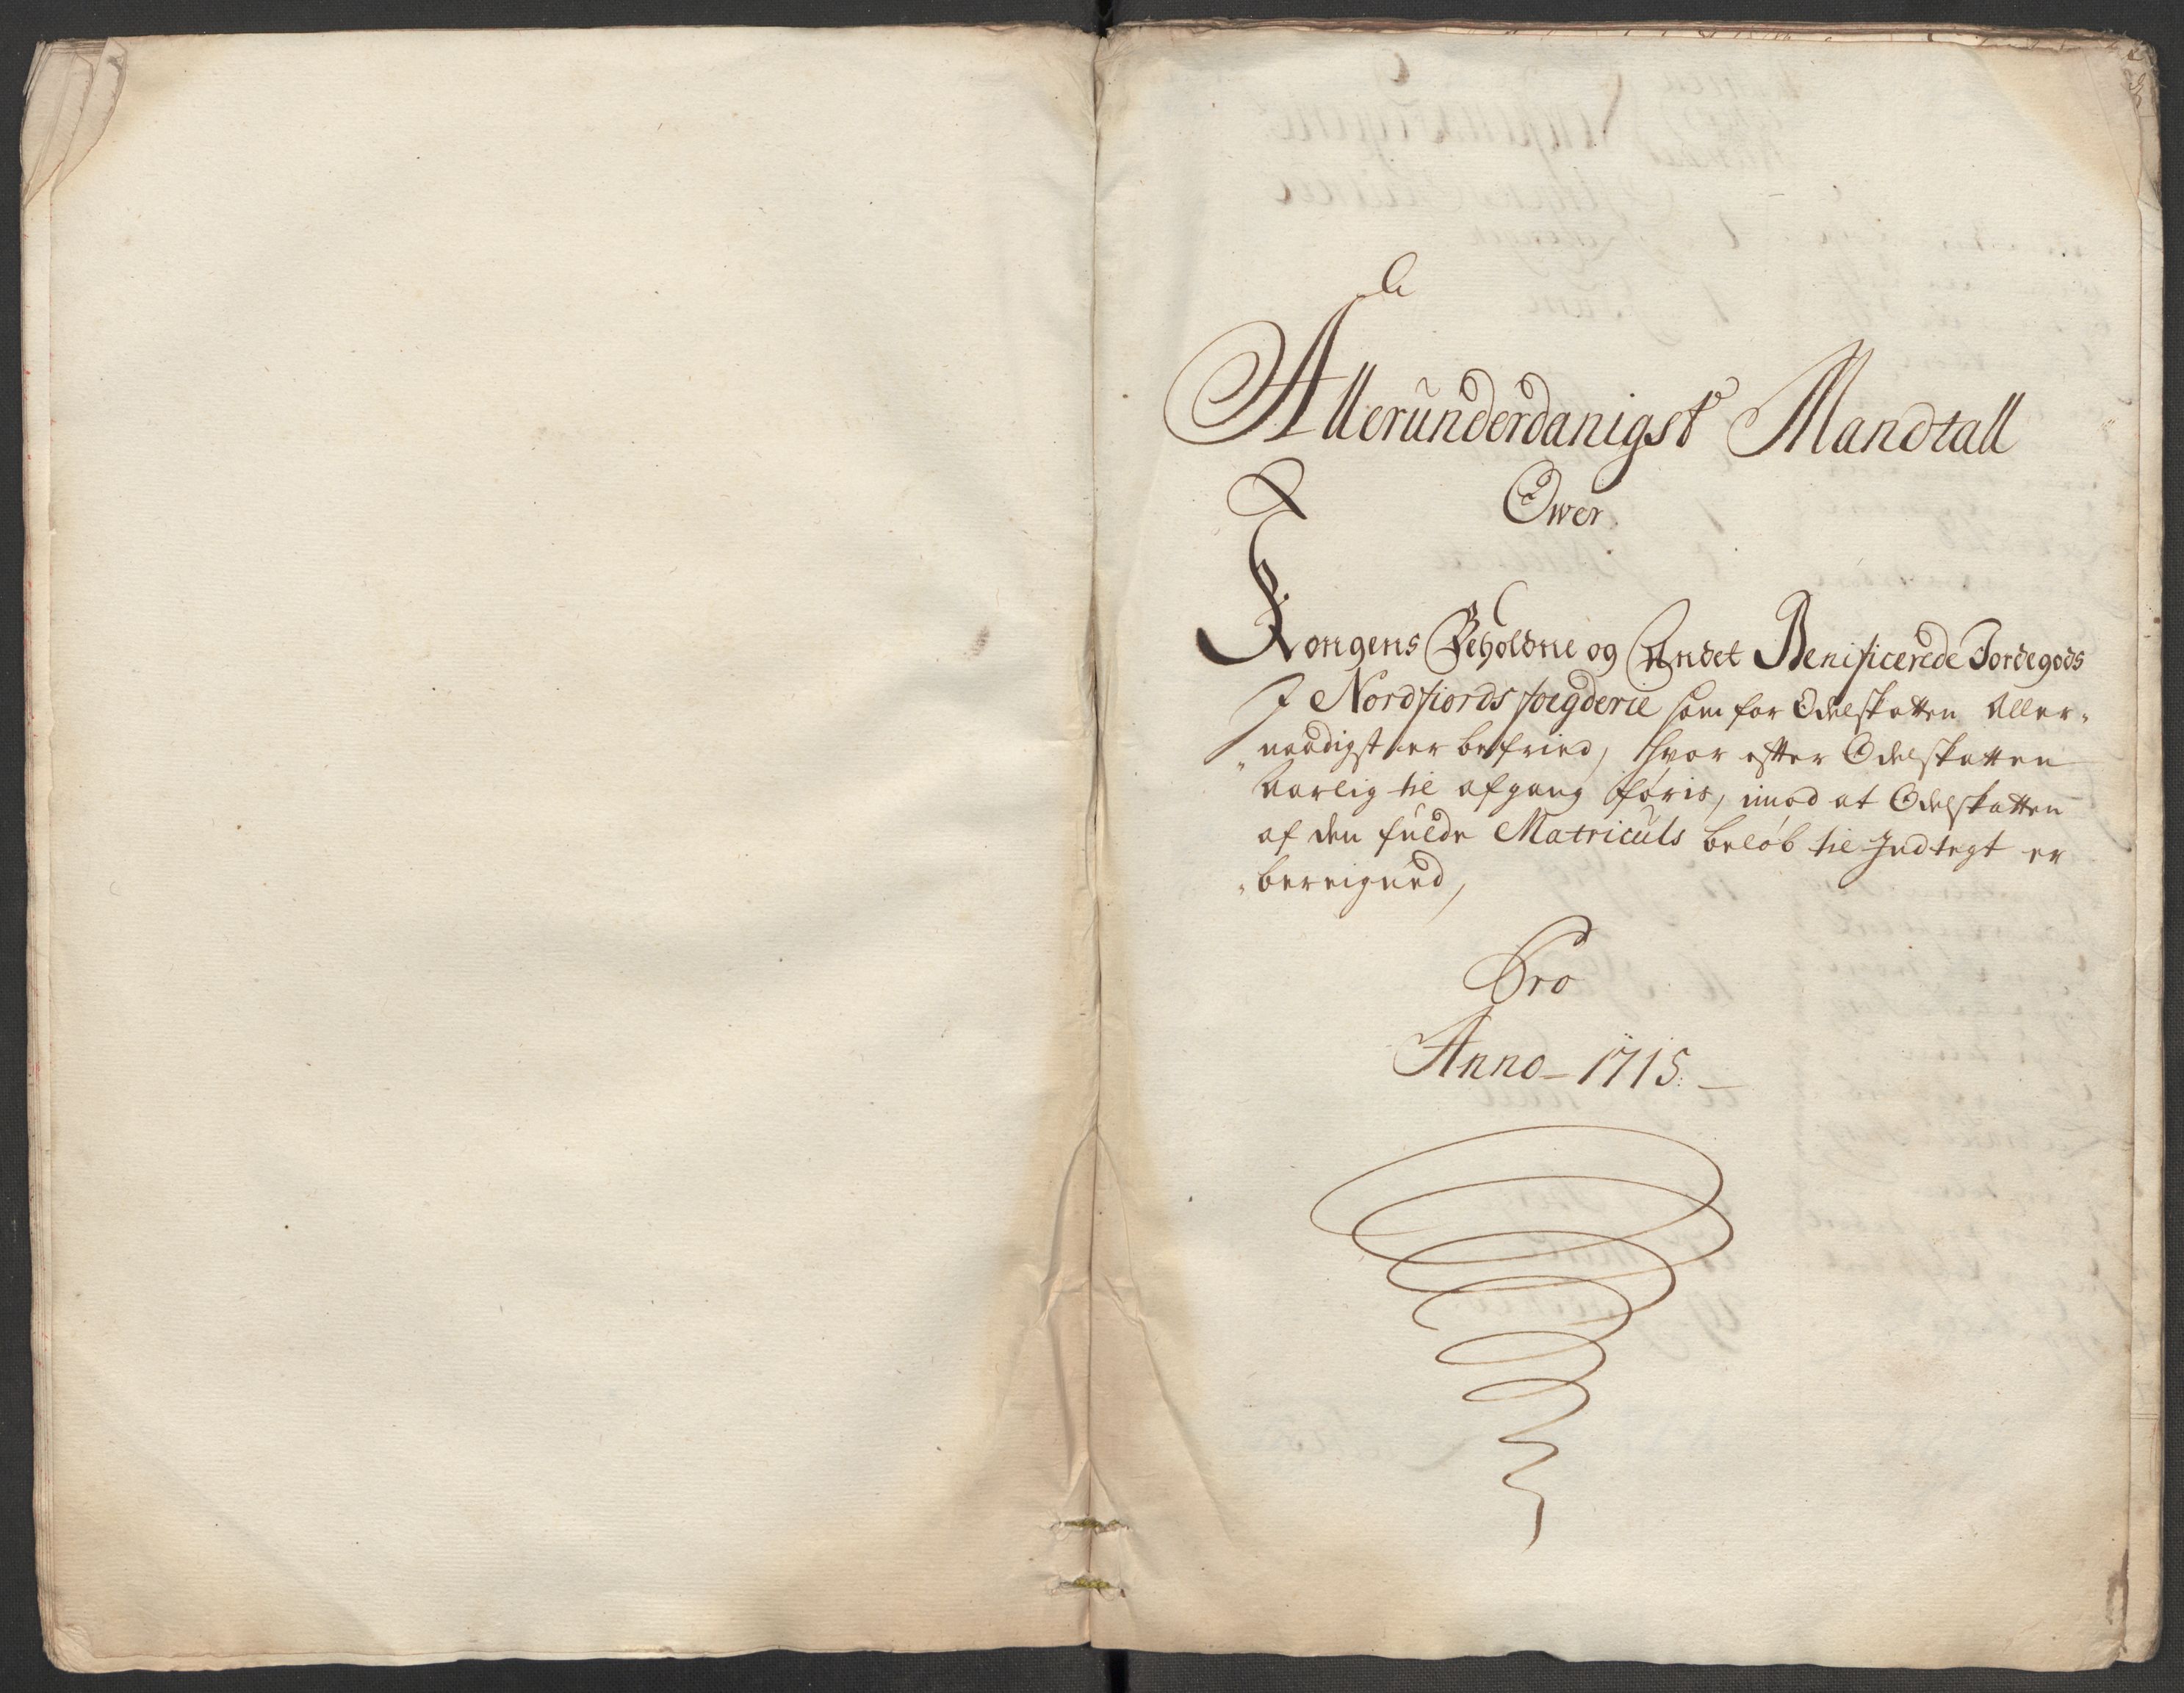 Allerunderdanigst Mandtall
Ower
Kongens Beholdne og Andet Benificerede Jordegods
I Nordfiords fogderie som for Odelskatten Aller-
naadigst er befried, hvor efter Odelskatten
Aarlig til afgang føris, imod at Odelskatten
af den fulde Matriculs beløb til Indtegt er
bereigned,
Pro
Anno - 1715. -